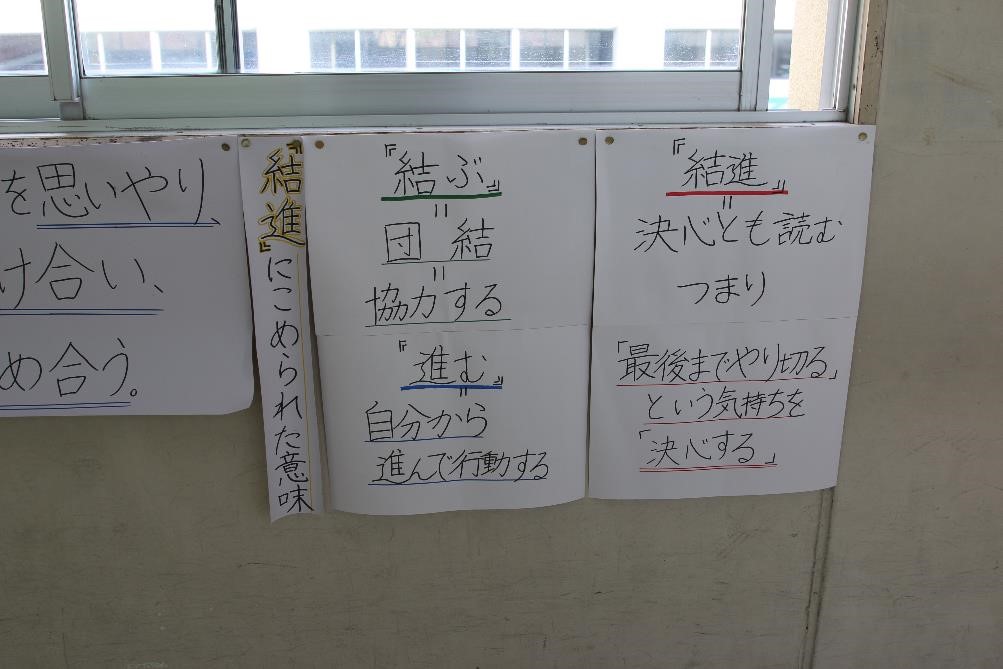 を思いやり、
け合い、
め合う。
『結進』にこめられた意味
『結ぶ』
=
団結
=
協力する
『進む』
=
自分から
進んで行動する
『結進』
=
決心とも読む
つまり
「最後までやり切る」
という気持ちを
「決心する」